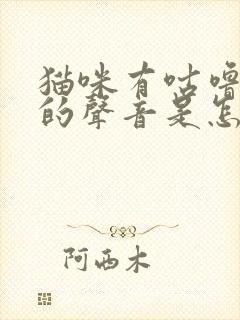 猫咪有咕嚕
的聲音是怎
阿西木